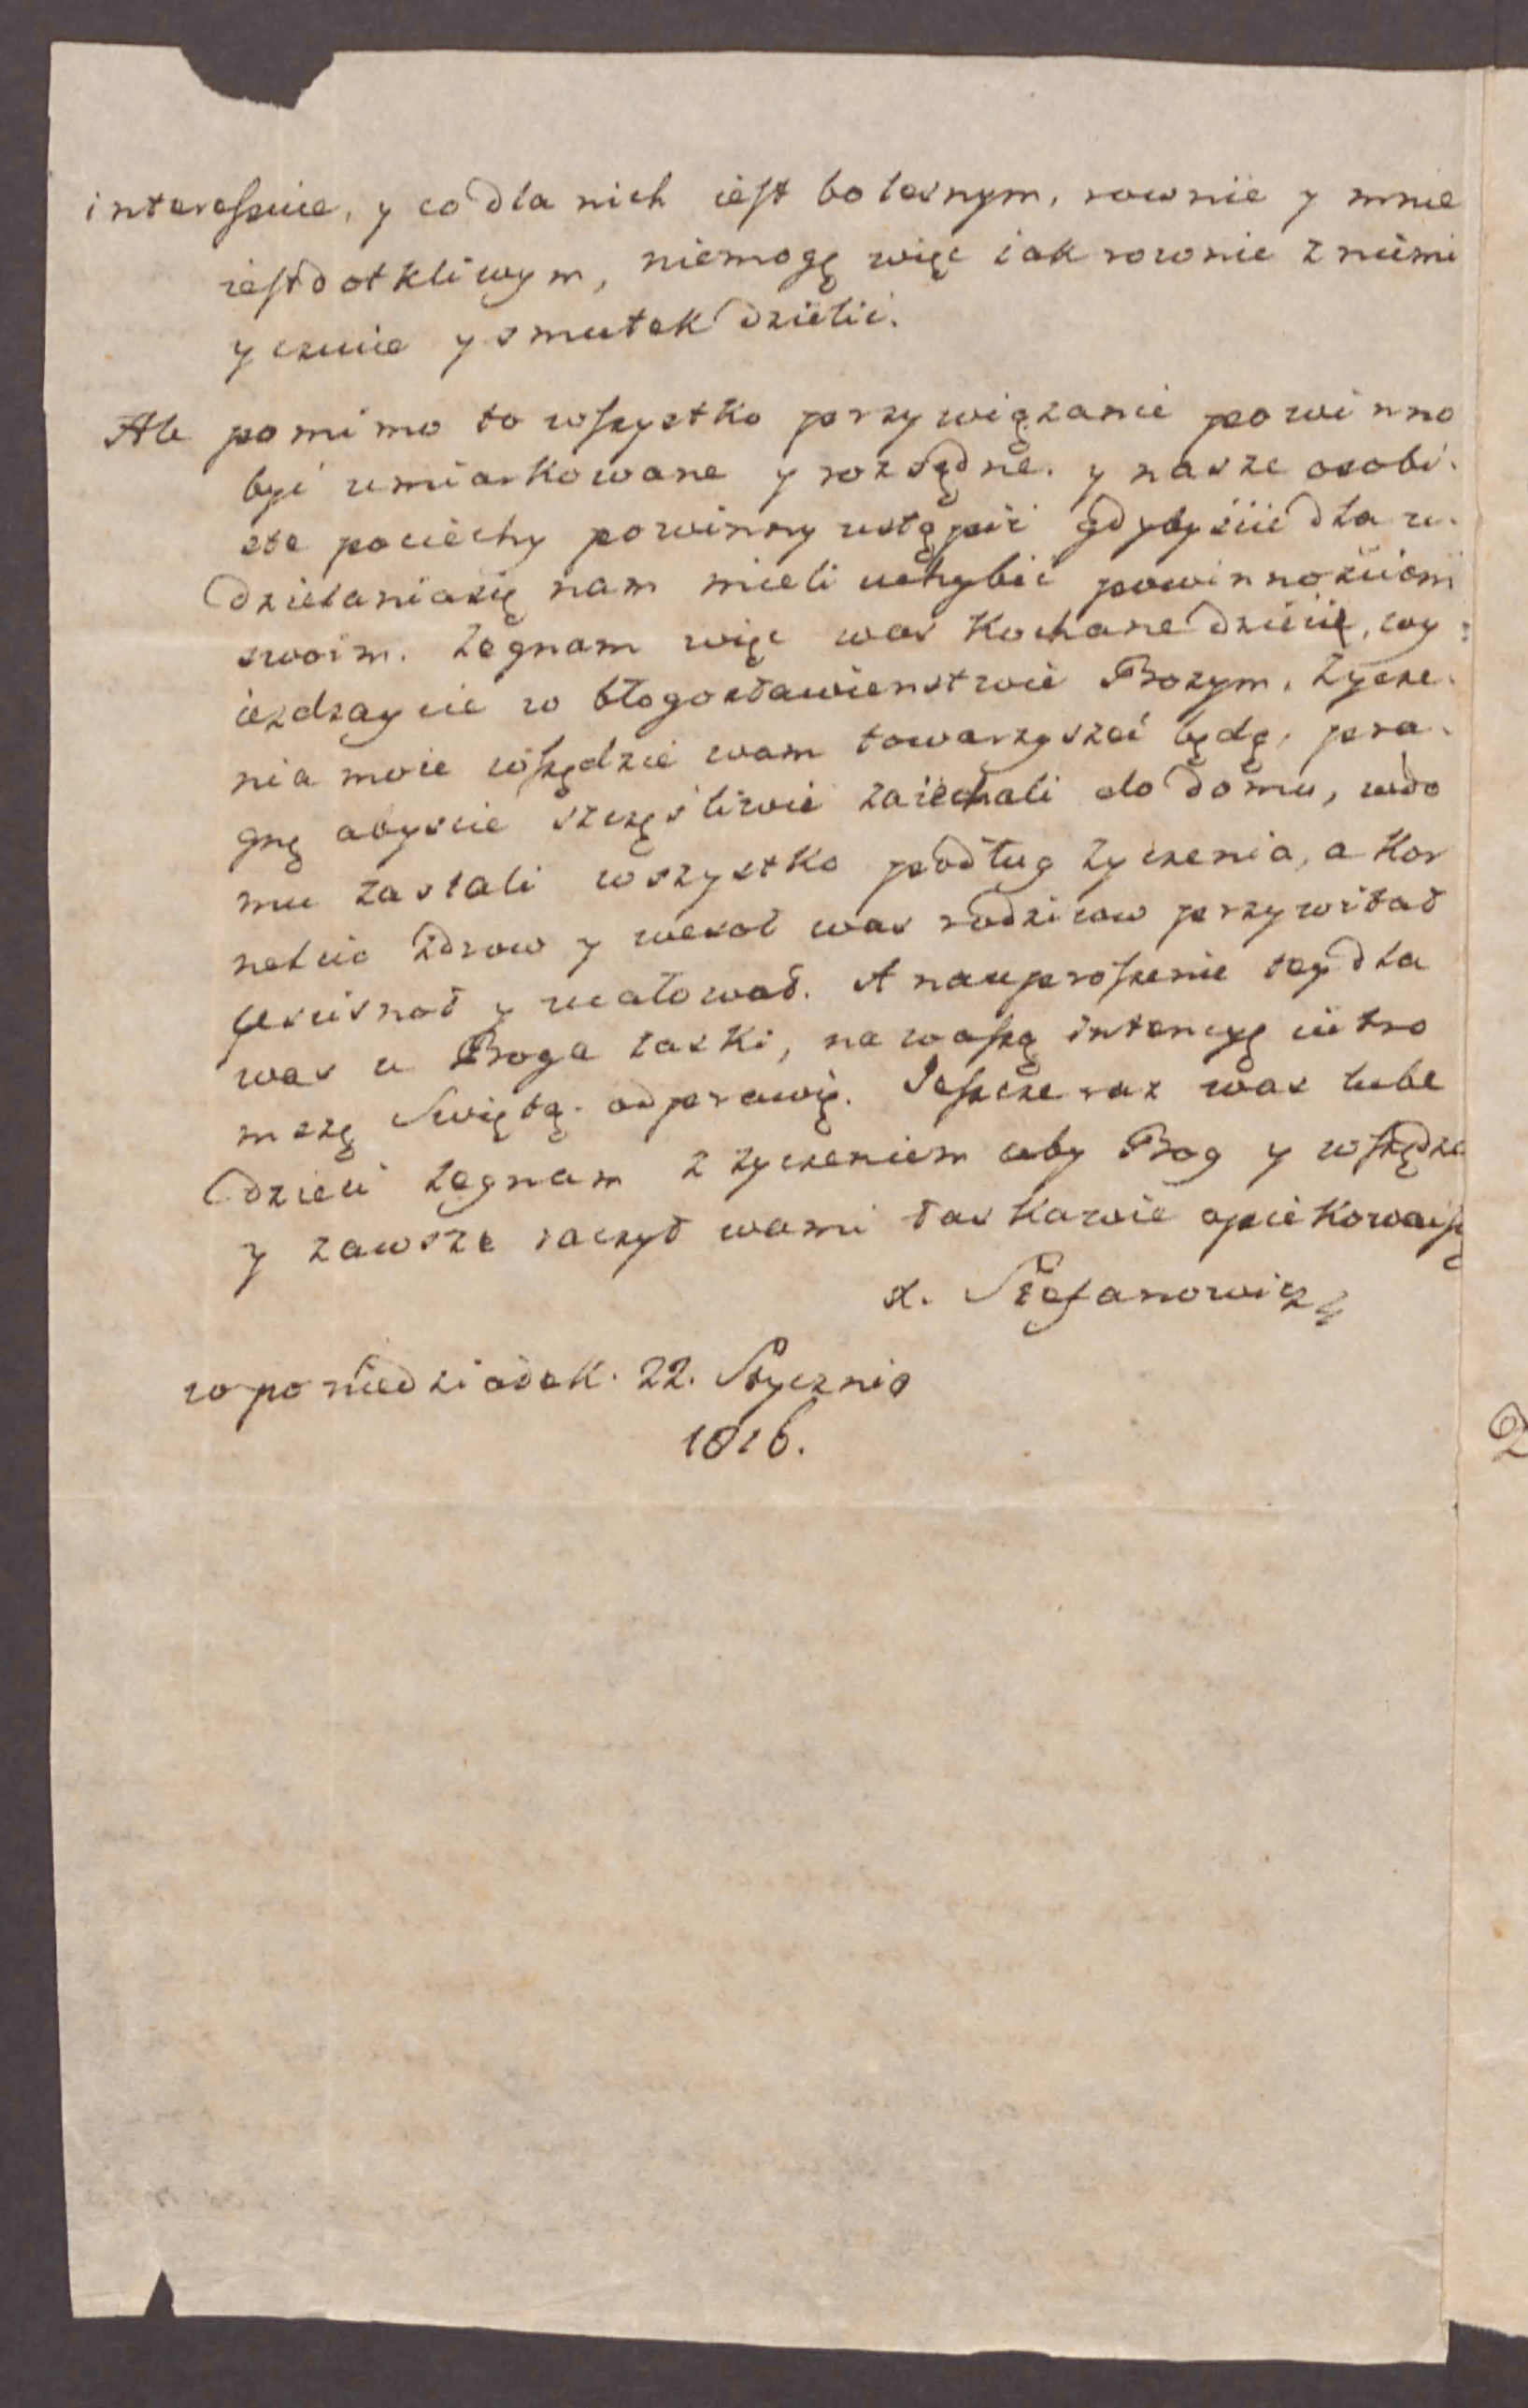 interessuie, y co dla nich iest bolesnym, rownie y mnie
iest dotkliwym, niemogę więc iak rownie z niemi
y czucie y smutek dzielić.
Ale pomimo to wszystko przywiązanie powinno
być umiarkowane y rozsądne. y nasze osobi-
ste pociechy powinny ustąpić gdybyście dla u-
dzielania się nam mieli uchybić powinnościom
swoim. Zegnam więc was kochane dzieci, wy-
ieżdzaycie w błogosławienstwie Bozym, życze-
nia moie wszędzie wam towarzyszeć będą, pra-
gnę abyscie szczęśliwie zaiechali do domu, wdo
mu zastali wszystko podług życzenia, a Kor
nelcio zdrow y wesoł was rodzicow przywitał
uscisnoł y ucałował. A na uproszenie tey dla
was u Boga łaski, na waszą intencyę iutro
mszę Swiętą odprawię. Ieszcze raz was lube
dzieci zegnam z życzeniem aby Bog y wszędzie
y zawsze raczył wami łaskawie opiekować się
x. Stefanowicz
w poniedziałek. 22. Stycznia
1816.